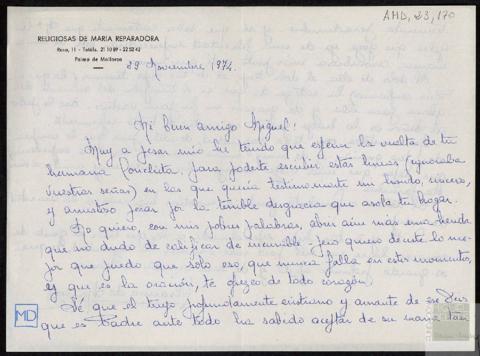 AMD, 23, 170
RELIGIOSAS DE MARIA REPARADORA
Roca, 11 - Teléfs. 21 10 89 - 22 52 42
Palma de Mallorca
29 Noviembre 1974.
Mi buen amigo Miguel!
Muy a pesar mío he tenido que esperar la vuelta de tu
hermana Conchita para poderte escribir estas líneas (ignoraba
vuestras señas) en las que quería testimoniarte mi hondo, sincero,
y amistoso pesar por la terrible desgracia que asola tu hogar.
No quiero, con mis pobres palabras, abrir aún más una herida
que no dudo de calificar de incurable - pero quiero decirte lo me-
jor que puedo que sólo eso, que nunca falla en estos momentos,
y es que es la oración, te ofrezco de todo corazón.
Sé que el tuyo profundamente cristiano y amante de ese Dios
que es Padre ante todo ha sabido aceptar de su mano tan
MD